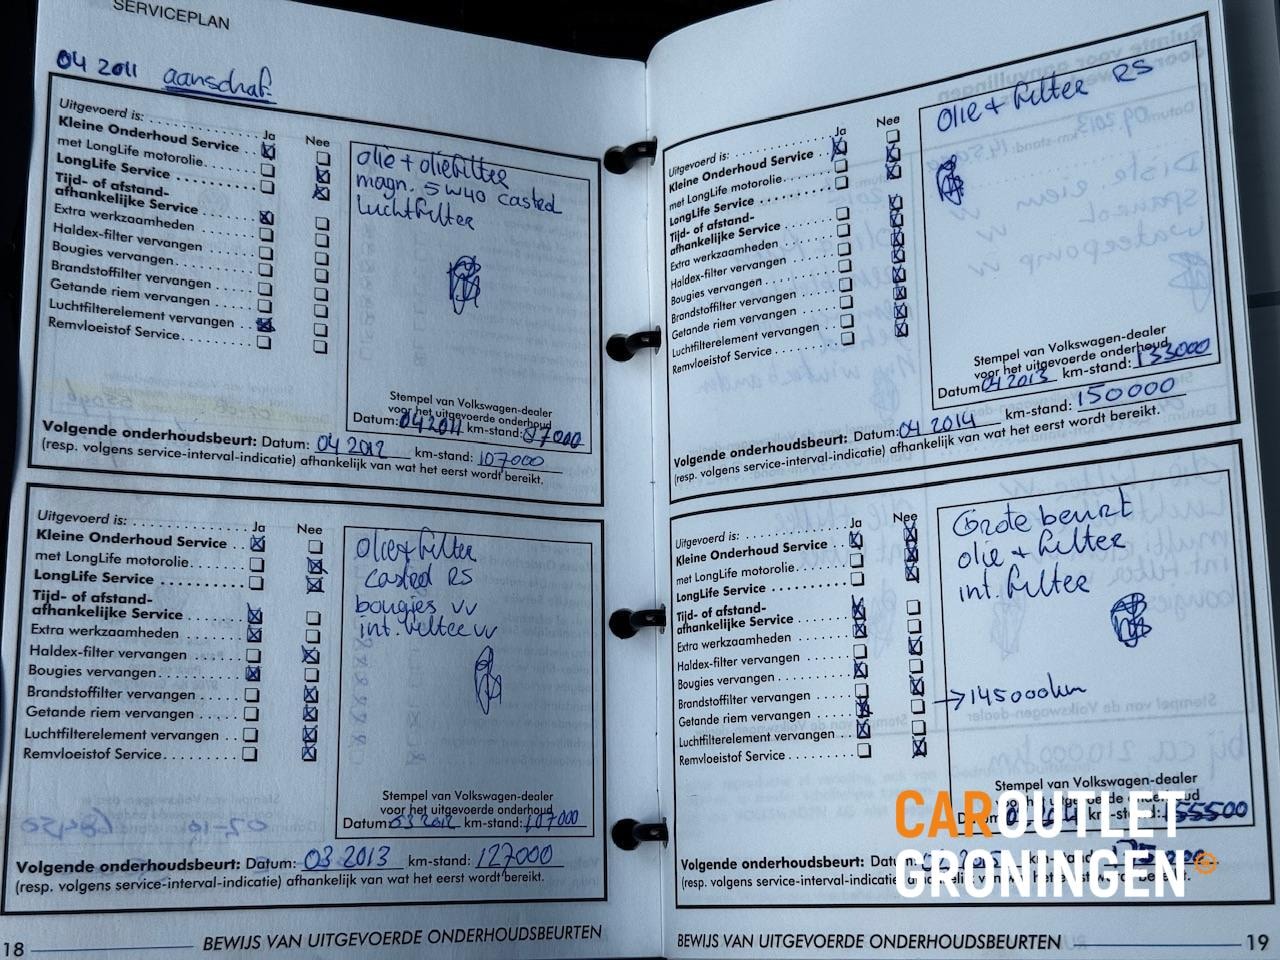 SERVICEPLAN
04 2011 aanschaf.
Uitgevoerd is:
Ja Nee
Kleine Onderhoud Service
met LongLife motorolie
LongLife Service
Tijd- of afstand-
afhankelijke Service
Extra werkzaamheden
Haldex-filter vervangen
Bougies vervangen
Brandstoffilter vervangen
Getande riem vervangen
Luchtfilterelement vervangen
Remvloeistof Service
olie + oliefilter
magn. 5W40 castrol
luchtfilter
Stempel van Volkswagen-dealer
voor het uitgevoerde onderhoud
Datum: 04 2011 km-stand: 87000
Volgende onderhoudsbeurt: Datum: 04 2012 km-stand: 107000
(resp. volgens service-interval-indicatie) afhankelijk van wat het eerst wordt bereikt.
Uitgevoerd is:
Ja Nee
Kleine Onderhoud Service
met LongLife motorolie
LongLife Service
Tijd- of afstand-
afhankelijke Service
Extra werkzaamheden
Haldex-filter vervangen
Bougies vervangen
Brandstoffilter vervangen
Getande riem vervangen
Luchtfilterelement vervangen
Remvloeistof Service
olie + filter
castrol RS
bougies vv
int. filter vv
Stempel van Volkswagen-dealer
voor het uitgevoerde onderhoud
Datum: 03 2012 km-stand: 107000
Volgende onderhoudsbeurt: Datum: 03 2013 km-stand: 127000
(resp. volgens service-interval-indicatie) afhankelijk van wat het eerst wordt bereikt.
18 BEWIJS VAN UITGEVOERDE ONDERHOUDSBEURTEN
Uitgevoerd is:
Ja Nee
Kleine Onderhoud Service
met LongLife motorolie
LongLife Service
Tijd- of afstand-
afhankelijke Service
Extra werkzaamheden
Haldex-filter vervangen
Bougies vervangen
Brandstoffilter vervangen
Getande riem vervangen
Luchtfilterelement vervangen
Remvloeistof Service
olie + filter RS
Stempel van Volkswagen-dealer
voor het uitgevoerde onderhoud
Datum: 04 2013 km-stand: 133000
Volgende onderhoudsbeurt: Datum: 04 2014 km-stand: 150000
(resp. volgens service-interval-indicatie) afhankelijk van wat het eerst wordt bereikt.
Uitgevoerd is:
Ja Nee
Kleine Onderhoud Service
met LongLife motorolie
LongLife Service
Tijd- of afstand-
afhankelijke Service
Extra werkzaamheden
Haldex-filter vervangen
Bougies vervangen
Brandstoffilter vervangen
Getande riem vervangen
Luchtfilterelement vervangen
Remvloeistof Service
Grote beurt
olie + filter
int. filter
→ 145000km
Stempel van Volkswagen-dealer
voor het uitgevoerde onderhoud
km-stand: 155500
Volgende onderhoudsbeurt:
(resp. volgens service-interval-indicatie)
CAROUTLET
GRONINGEN
BEWIJS VAN UITGEVOERDE ONDERHOUDSBEURTEN 19